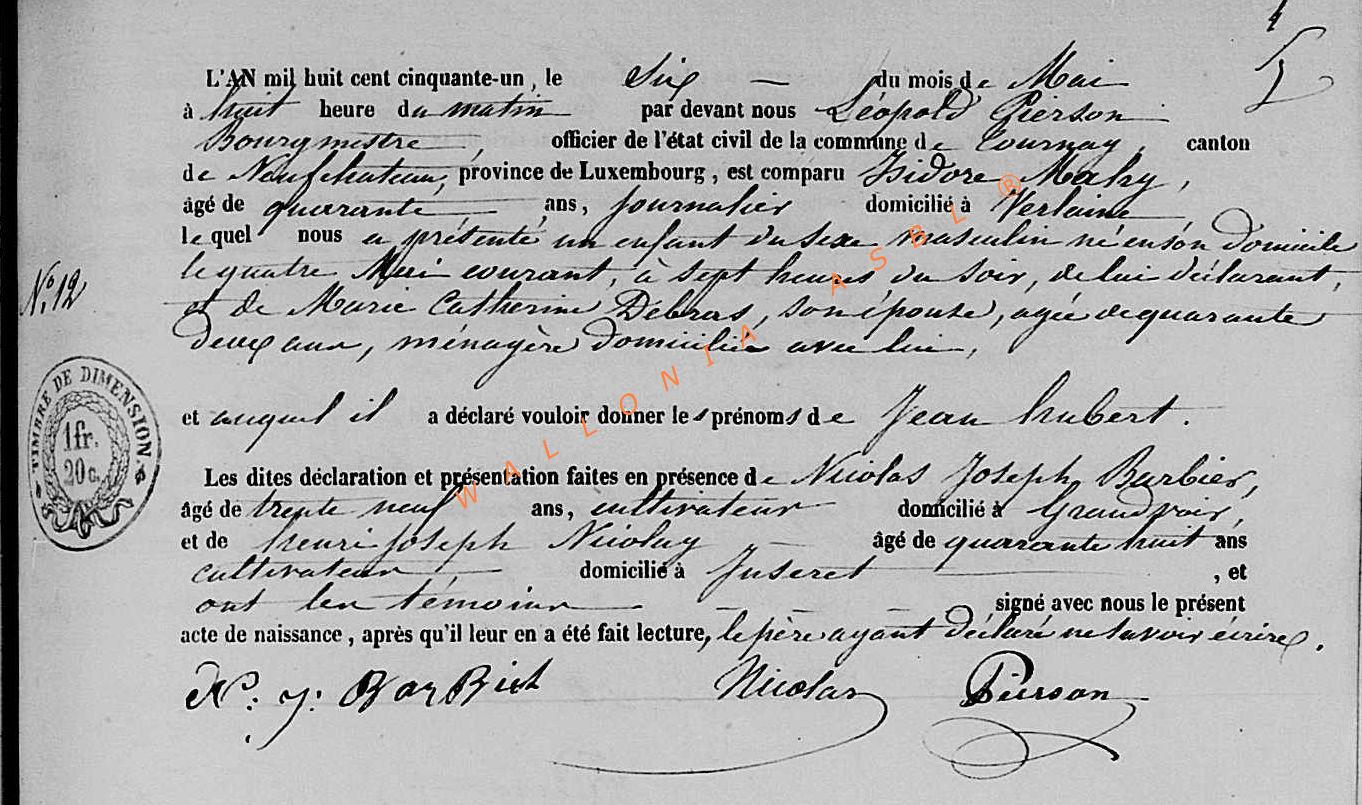 L'AN mil huit cent cinquante-un, le Six — du mois de Mai
à huit heure du matin par devant nous Léopold Pierson
Bourgmestre, officier de l'état civil de la commune de Tournay, canton
de Neufchateau, province de Luxembourg, est comparu Isidore Mahy,
âgé de quarante ans, journalier domicilié à Verlaine
lequel nous a présenté un enfant du sexe masculin né en son domicile
le quatre Mai courant, à sept heures du soir, de lui déclarant,
N° 12
et de Marie Catherine Debras, son épouse, agée de quarante
deux ans, ménagère domiciliée avec lui,
et auquel il a déclaré vouloir donner les prénoms de Jean hubert.
TIMBRE DE DIMENSION
1 fr.
20 c.
Les dites déclaration et présentation faites en présence de Nicolas Joseph Barbier,
âgé de trente neuf ans, cultivateur domicilié à Grandvoir,
et de henri joseph Nicolay — âgé de quarante huit ans
cultivateur — domicilié à Juseret , et
ont les témoins — signé avec nous le présent
acte de naissance, après qu'il leur en a été fait lecture, le père ayant déclaré ne savoir écrire.
N: j: BarBier Nicolas Pierson
WALLONIA ASBL ®